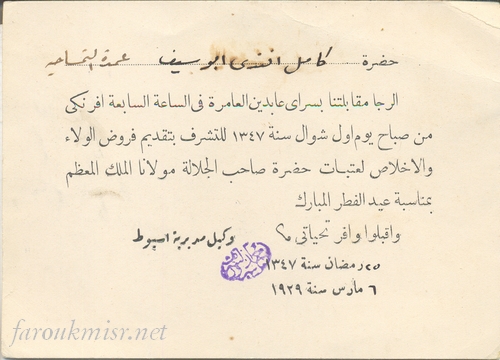 حضرة كامل افندى ابو سيف عمدة التمساحيه
الرجا مقابلتنا بسراى عابدين العامرة فى الساعة السابعة افرنكى
من صباح يوم اول شوال سنة ١٣٤٧ للتشرف بتقديم فروض الولاء
والاخلاص لعتبات حضرة صاحب الجلالة مولانا الملك المعظم
بمناسبة عيد الفطر المبارك
واقبلوا وافر تحياتى
وكيل مديرية اسيوط
٢٥ رمضان سنة ١٣٤٧
٦ مارس سنة ١٩٢٩
faroukmisr.net